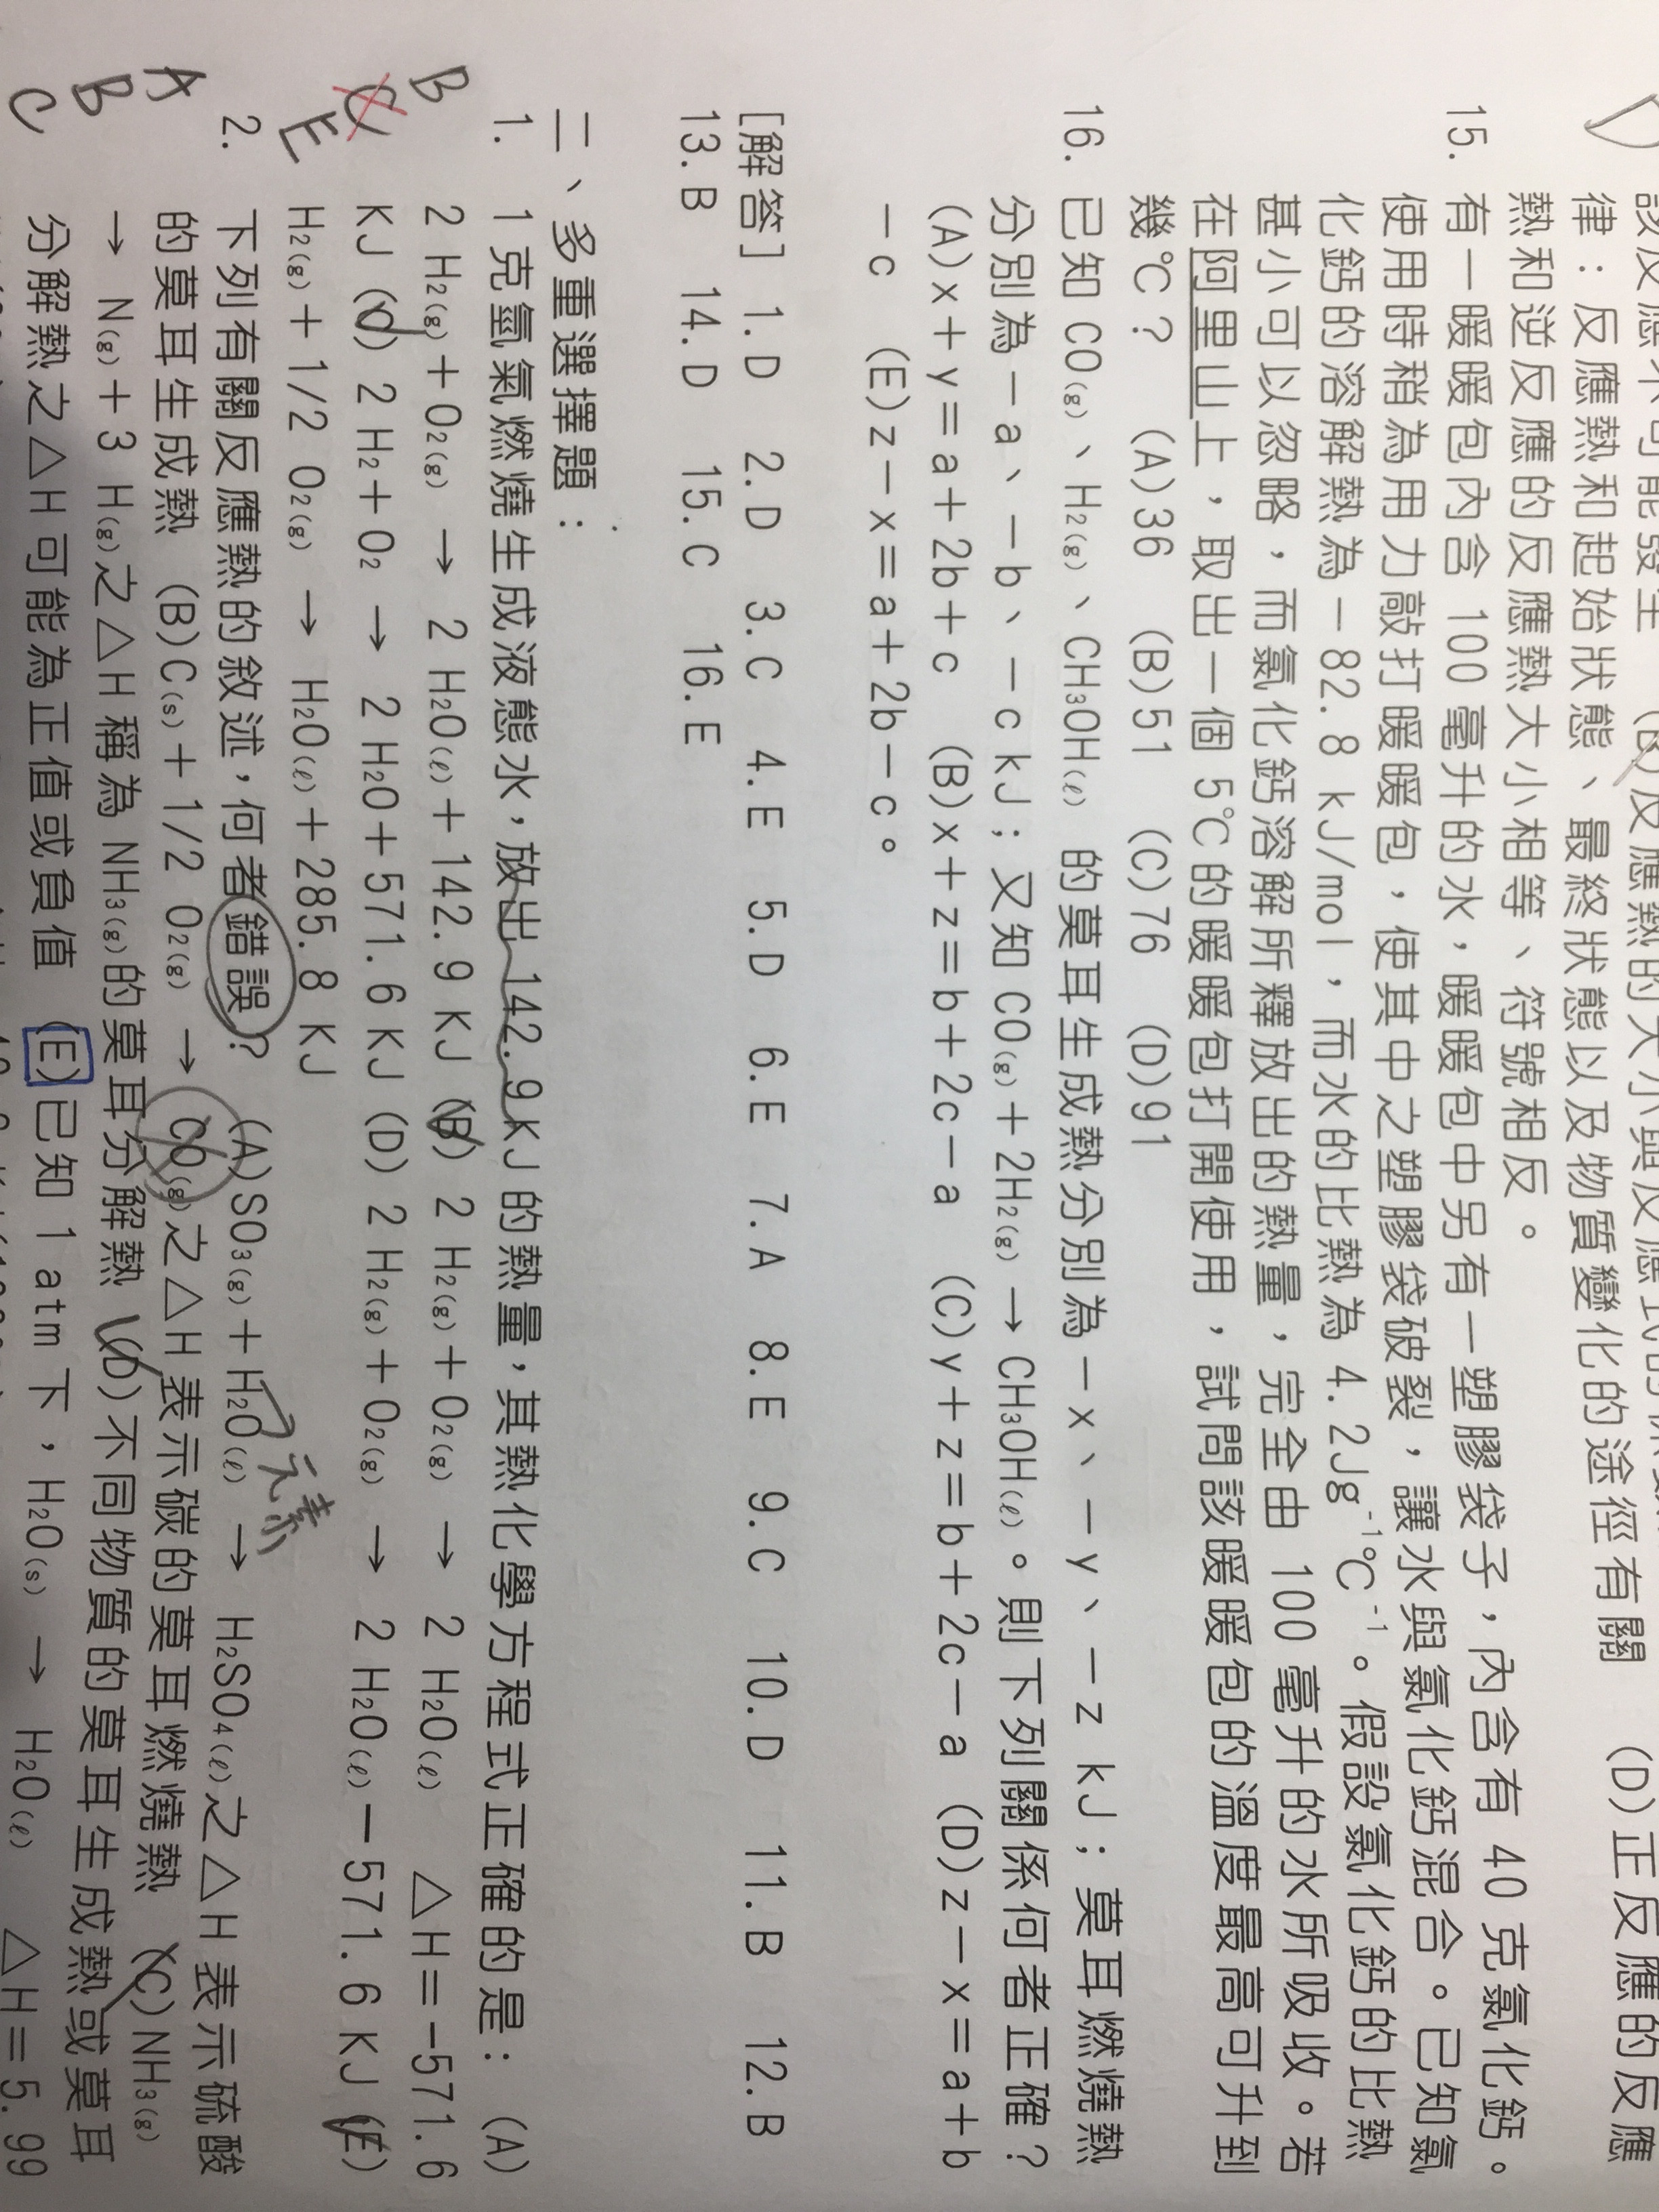 該反應不可能發生 (B)反應熱的大小與反應式的係數
律：反應熱和起始狀態、最終狀態以及物質變化的途徑有關 (D)正反應的反應
熱和逆反應的反應熱大小相等、符號相反。
15. 有一暖暖包內含 100 毫升的水，暖暖包中另有一塑膠袋子，內含有 40 克氯化鈣。
使用時稍為用力敲打暖暖包，使其中之塑膠袋破裂，讓水與氯化鈣混合。已知氯
化鈣的溶解熱為－82.8 kJ/mol，而水的比熱為 4.2Jg⁻¹℃⁻¹。假設氯化鈣的比熱
甚小可以忽略，而氯化鈣溶解所釋放出的熱量，完全由 100 毫升的水所吸收。若
在阿里山上，取出一個 5℃的暖暖包打開使用，試問該暖暖包的溫度最高可升到
幾℃？ (A)36 (B)51 (C)76 (D)91
16. 已知 CO(g)、H₂(g)、CH₃OH(ℓ) 的莫耳生成熱分別為－x、－y、－z kJ；莫耳燃燒熱
分別為－a、－b、－c kJ；又知 CO(g)＋2H₂(g) → CH₃OH(ℓ)。則下列關係何者正確？
(A)x＋y＝a＋2b＋c (B)x＋z＝b＋2c－a (C)y＋z＝b＋2c－a (D)z－x＝a＋b
－c (E)z－x＝a＋2b－c。
[解答] 1.D 2.D 3.C 4.E 5.D 6.E 7.A 8.E 9.C 10.D 11.B 12.B
13.B 14.D 15.C 16.E
二、多重選擇題：
1. 1 克氫氣燃燒生成液態水，放出 142.9KJ 的熱量，其熱化學方程式正確的是： (A)
B
2 H₂(g)＋O₂(g) → 2 H₂O(ℓ)＋142.9 KJ (B) 2 H₂(g)＋O₂(g) → 2 H₂O(ℓ) △H＝－571.6
C
KJ (C) 2 H₂＋O₂ → 2 H₂O＋571.6 KJ (D) 2 H₂(g)＋O₂(g) → 2 H₂O(ℓ)－571.6 KJ (E)
E
H₂(g)＋1/2 O₂(g) → H₂O(ℓ)＋285.8 KJ
元素
2. 下列有關反應熱的敘述，何者錯誤？ (A)SO₃(g)＋H₂O(ℓ) → H₂SO₄(ℓ)之△H 表示硫酸
A
的莫耳生成熱 (B)C(s)＋1/2 O₂(g) → CO(g)之△H 表示碳的莫耳燃燒熱 (C)NH₃(g)
B
→ N(g)＋3 H(g)之△H 稱為 NH₃(g)的莫耳分解熱 (D)不同物質的莫耳生成熱或莫耳
C
分解熱之△H 可能為正值或負值 (E)已知 1 atm 下，H₂O(s) → H₂O(ℓ) △H＝5.99